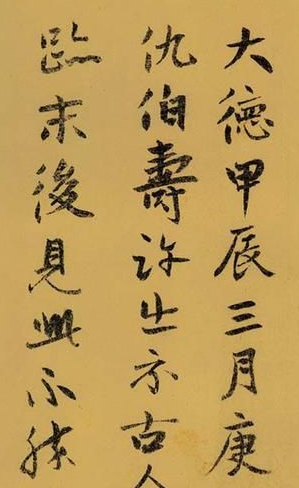 大德甲辰三月庚
仇伯壽許出示古人
跡末後見此不勝